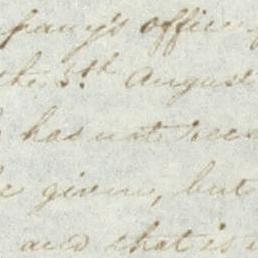 pany's office
the 5th August
has not
given, but
and that is